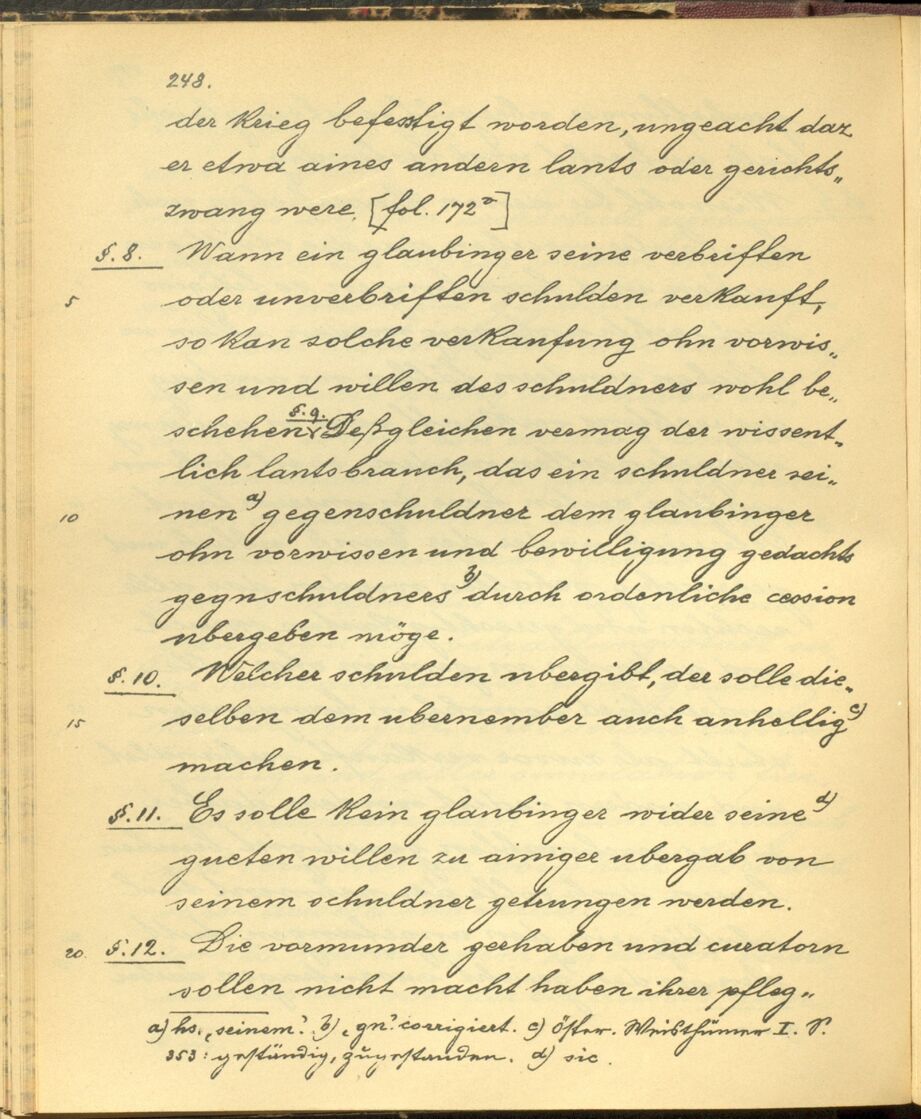 248.
der krieg befesstigt worden, ungeacht daz
er etwa aines andern lants oder gerichts„
zwang were. [fol. 172a]
§. 8. Wann ein glaubinger seine verbriften
5 oder unverbriften schulden verkauft,
so kan solche verkaufung ohn vorwis„
sen und willen des schuldners wohl be„
schehen. §. 9. Deßgleichen vermag der wissent„
lich lantsbrauch, das ein schuldner sei„
10 nen a) gegenschuldner dem glaubinger
ohn vorwissen und bewilligung gedachts
gegnschuldners b) durch ordenliche cession
ubergeben möge.
§. 10. Welcher schulden ubergibt, der solle die„
15 selben dem ubernember auch anhellig c)
machen.
§. 11. Es solle kein glaubinger wider seine d)
gueten willen zu ainiger ubergab von
seinem schuldner getrungen werden.
20. §. 12. Die vormunder gerhaben und curatorn
sollen nicht macht haben ihrer pfleg„
a) hs. ‚seinem‘. b) ‚gn‘ corrigiert. c) Öster. Weisthümer I. S.
353: geständig, zugestanden. d) sic.